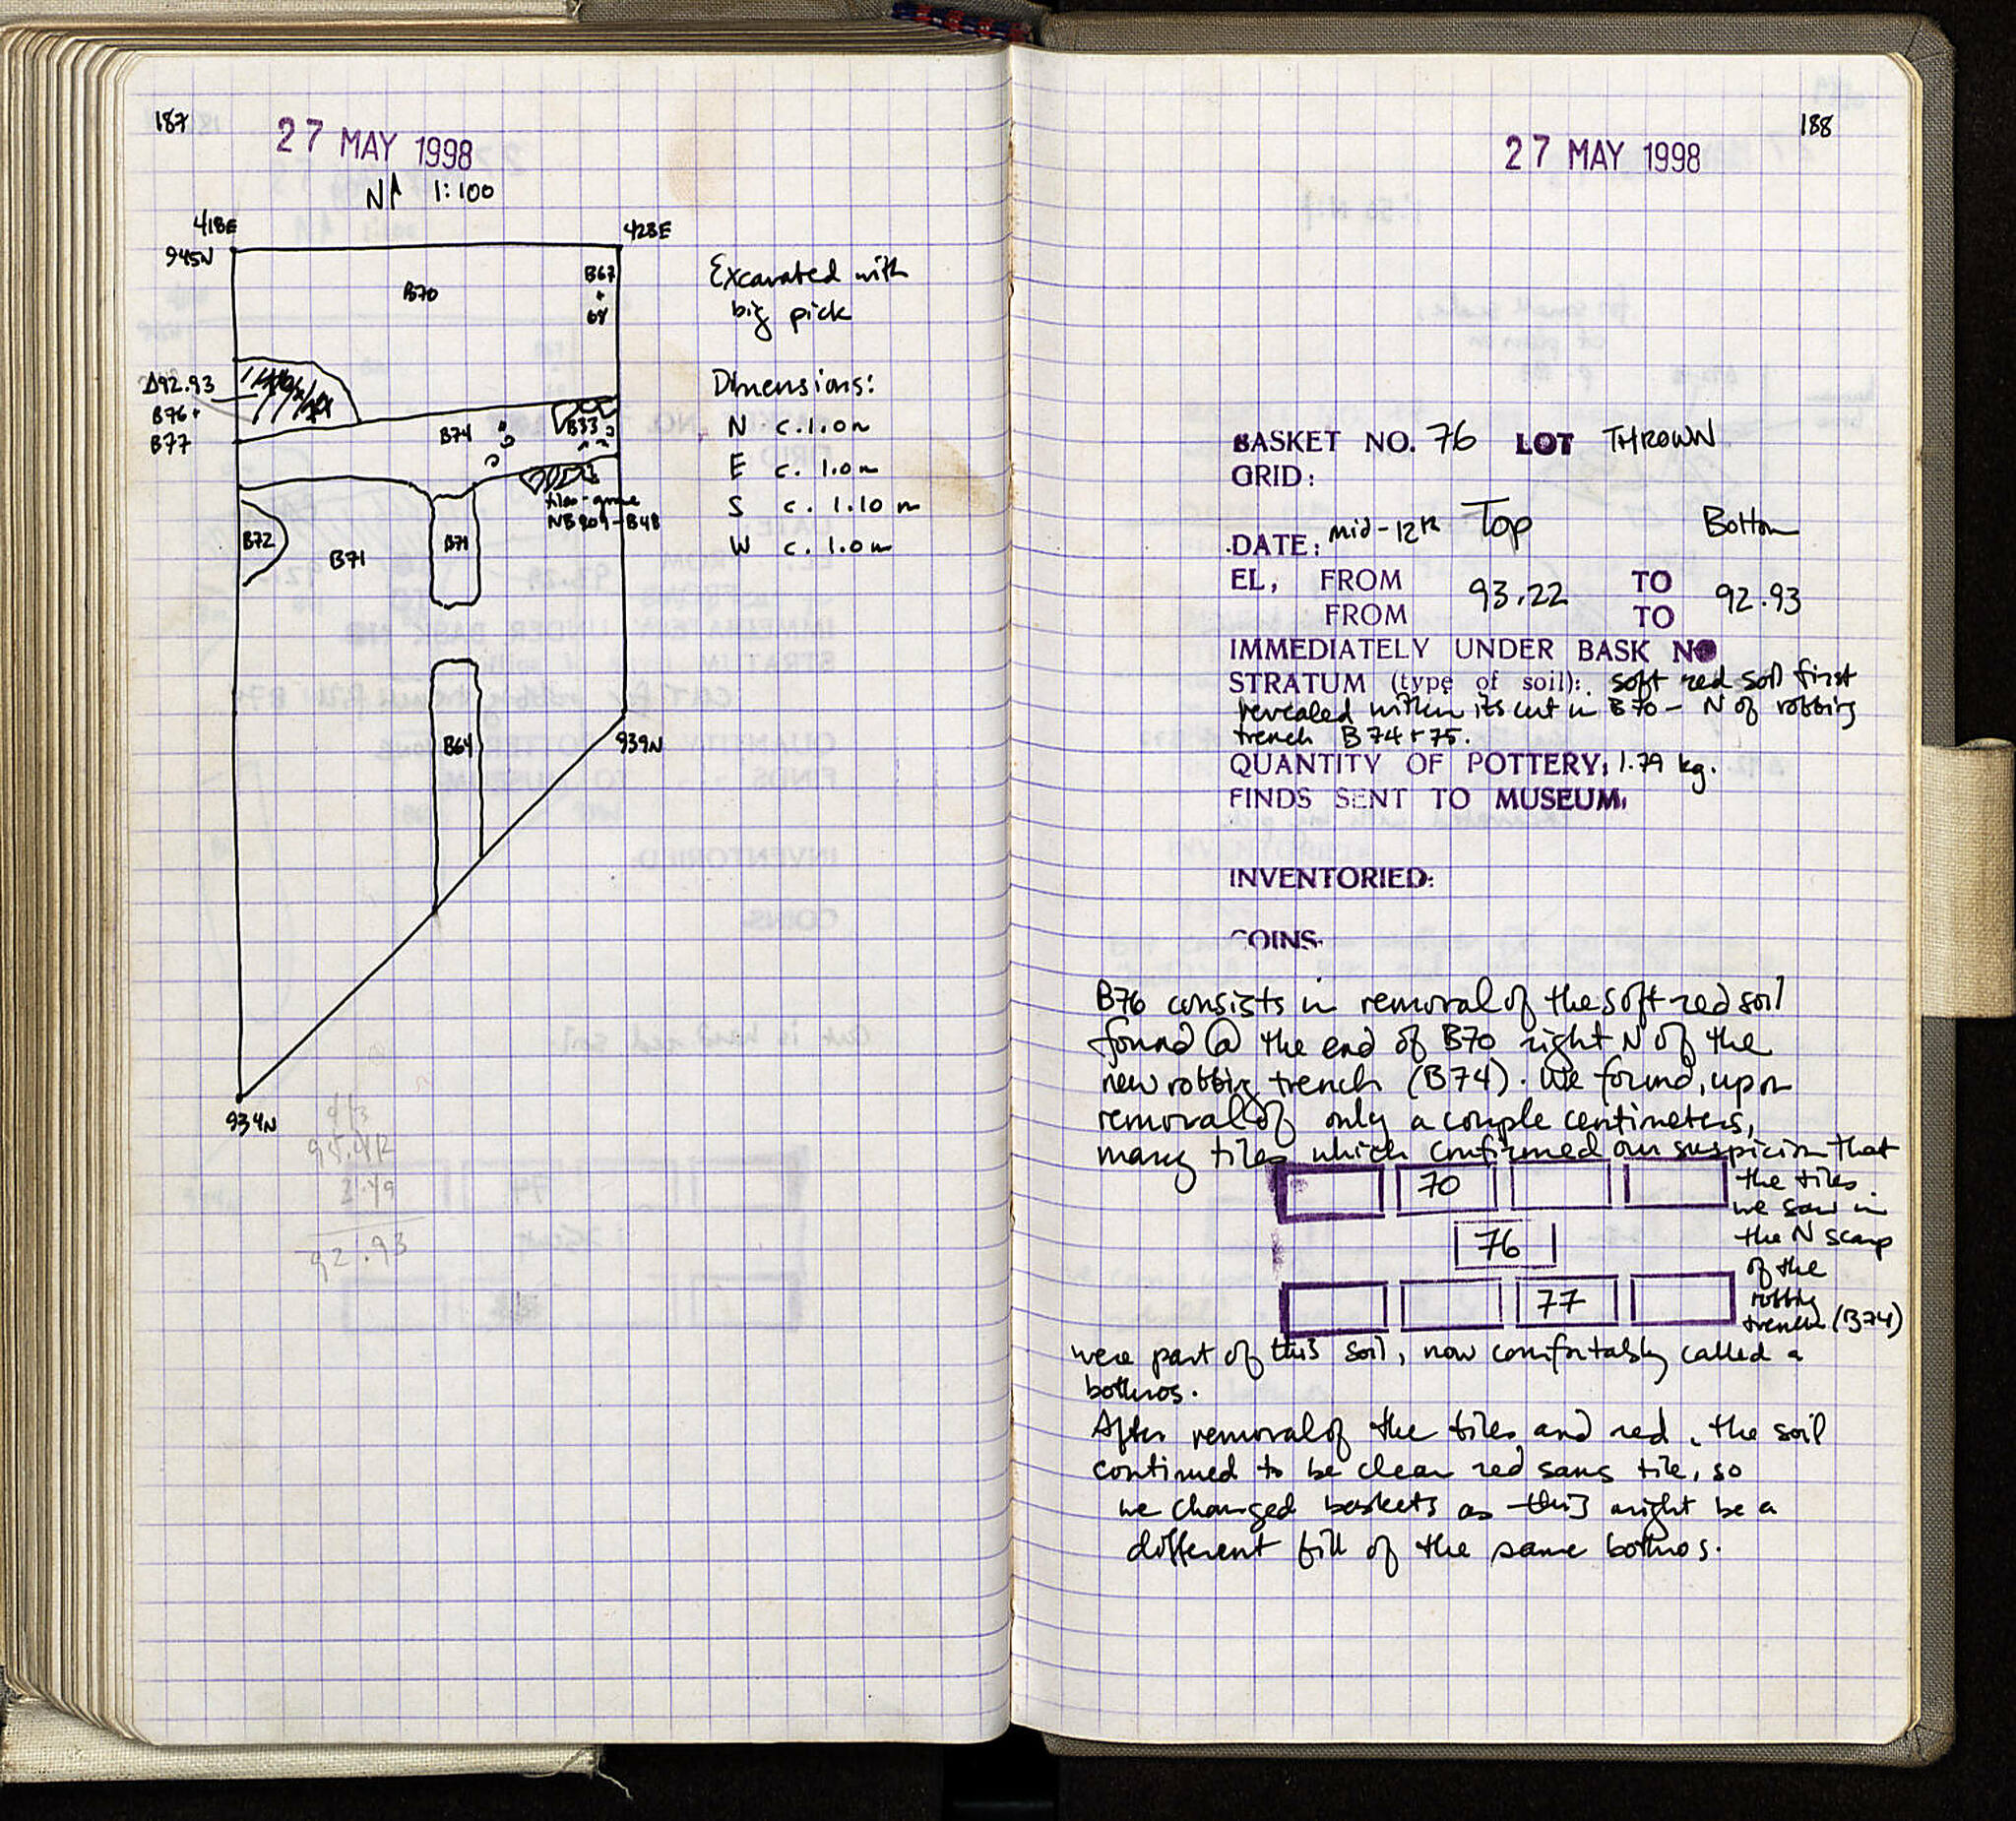 187
27 MAY 1998
N 1:100
418E
428E
945N
B67
+
68
B70
Excavated with
big pick
Dimensions:
N c. 1.0 m
E c. 1.0 m
S c. 1.10 m
W c. 1.0 m
Δ92.93
B76+
B77
B74
B33
tiles-grave
NB 909-B48
B72
B71
B71
B64
939N
934N
95.42
2.49
92.93
188
27 MAY 1998
BASKET NO. 76 LOT THROWN
GRID:
DATE: mid-12th Top Bottom
EL, FROM 93.22 TO 92.93
FROM TO
IMMEDIATELY UNDER BASK NO
STRATUM (type of soil): soft red soil first
revealed within its cut in B70 - N of robbing
trench B74+75.
QUANTITY OF POTTERY: 1.79 kg.
FINDS SENT TO MUSEUM:
INVENTORIED:
COINS
B76 consists in removal of the soft red soil
found @ the end of B70 right N of the
new robbing trench (B74). We found, upon
removal of only a couple centimeters,
many tiles which confirmed our suspicion that
the tiles
we saw in
the N scarp
of the
robbing
trench (B74)
70
76
77
were part of this soil, now comfortably called a
bothros.
After removal of the tiles and red, the soil
continued to be clean red sans tile, so
we changed baskets as this might be a
different fill of the same bothros.